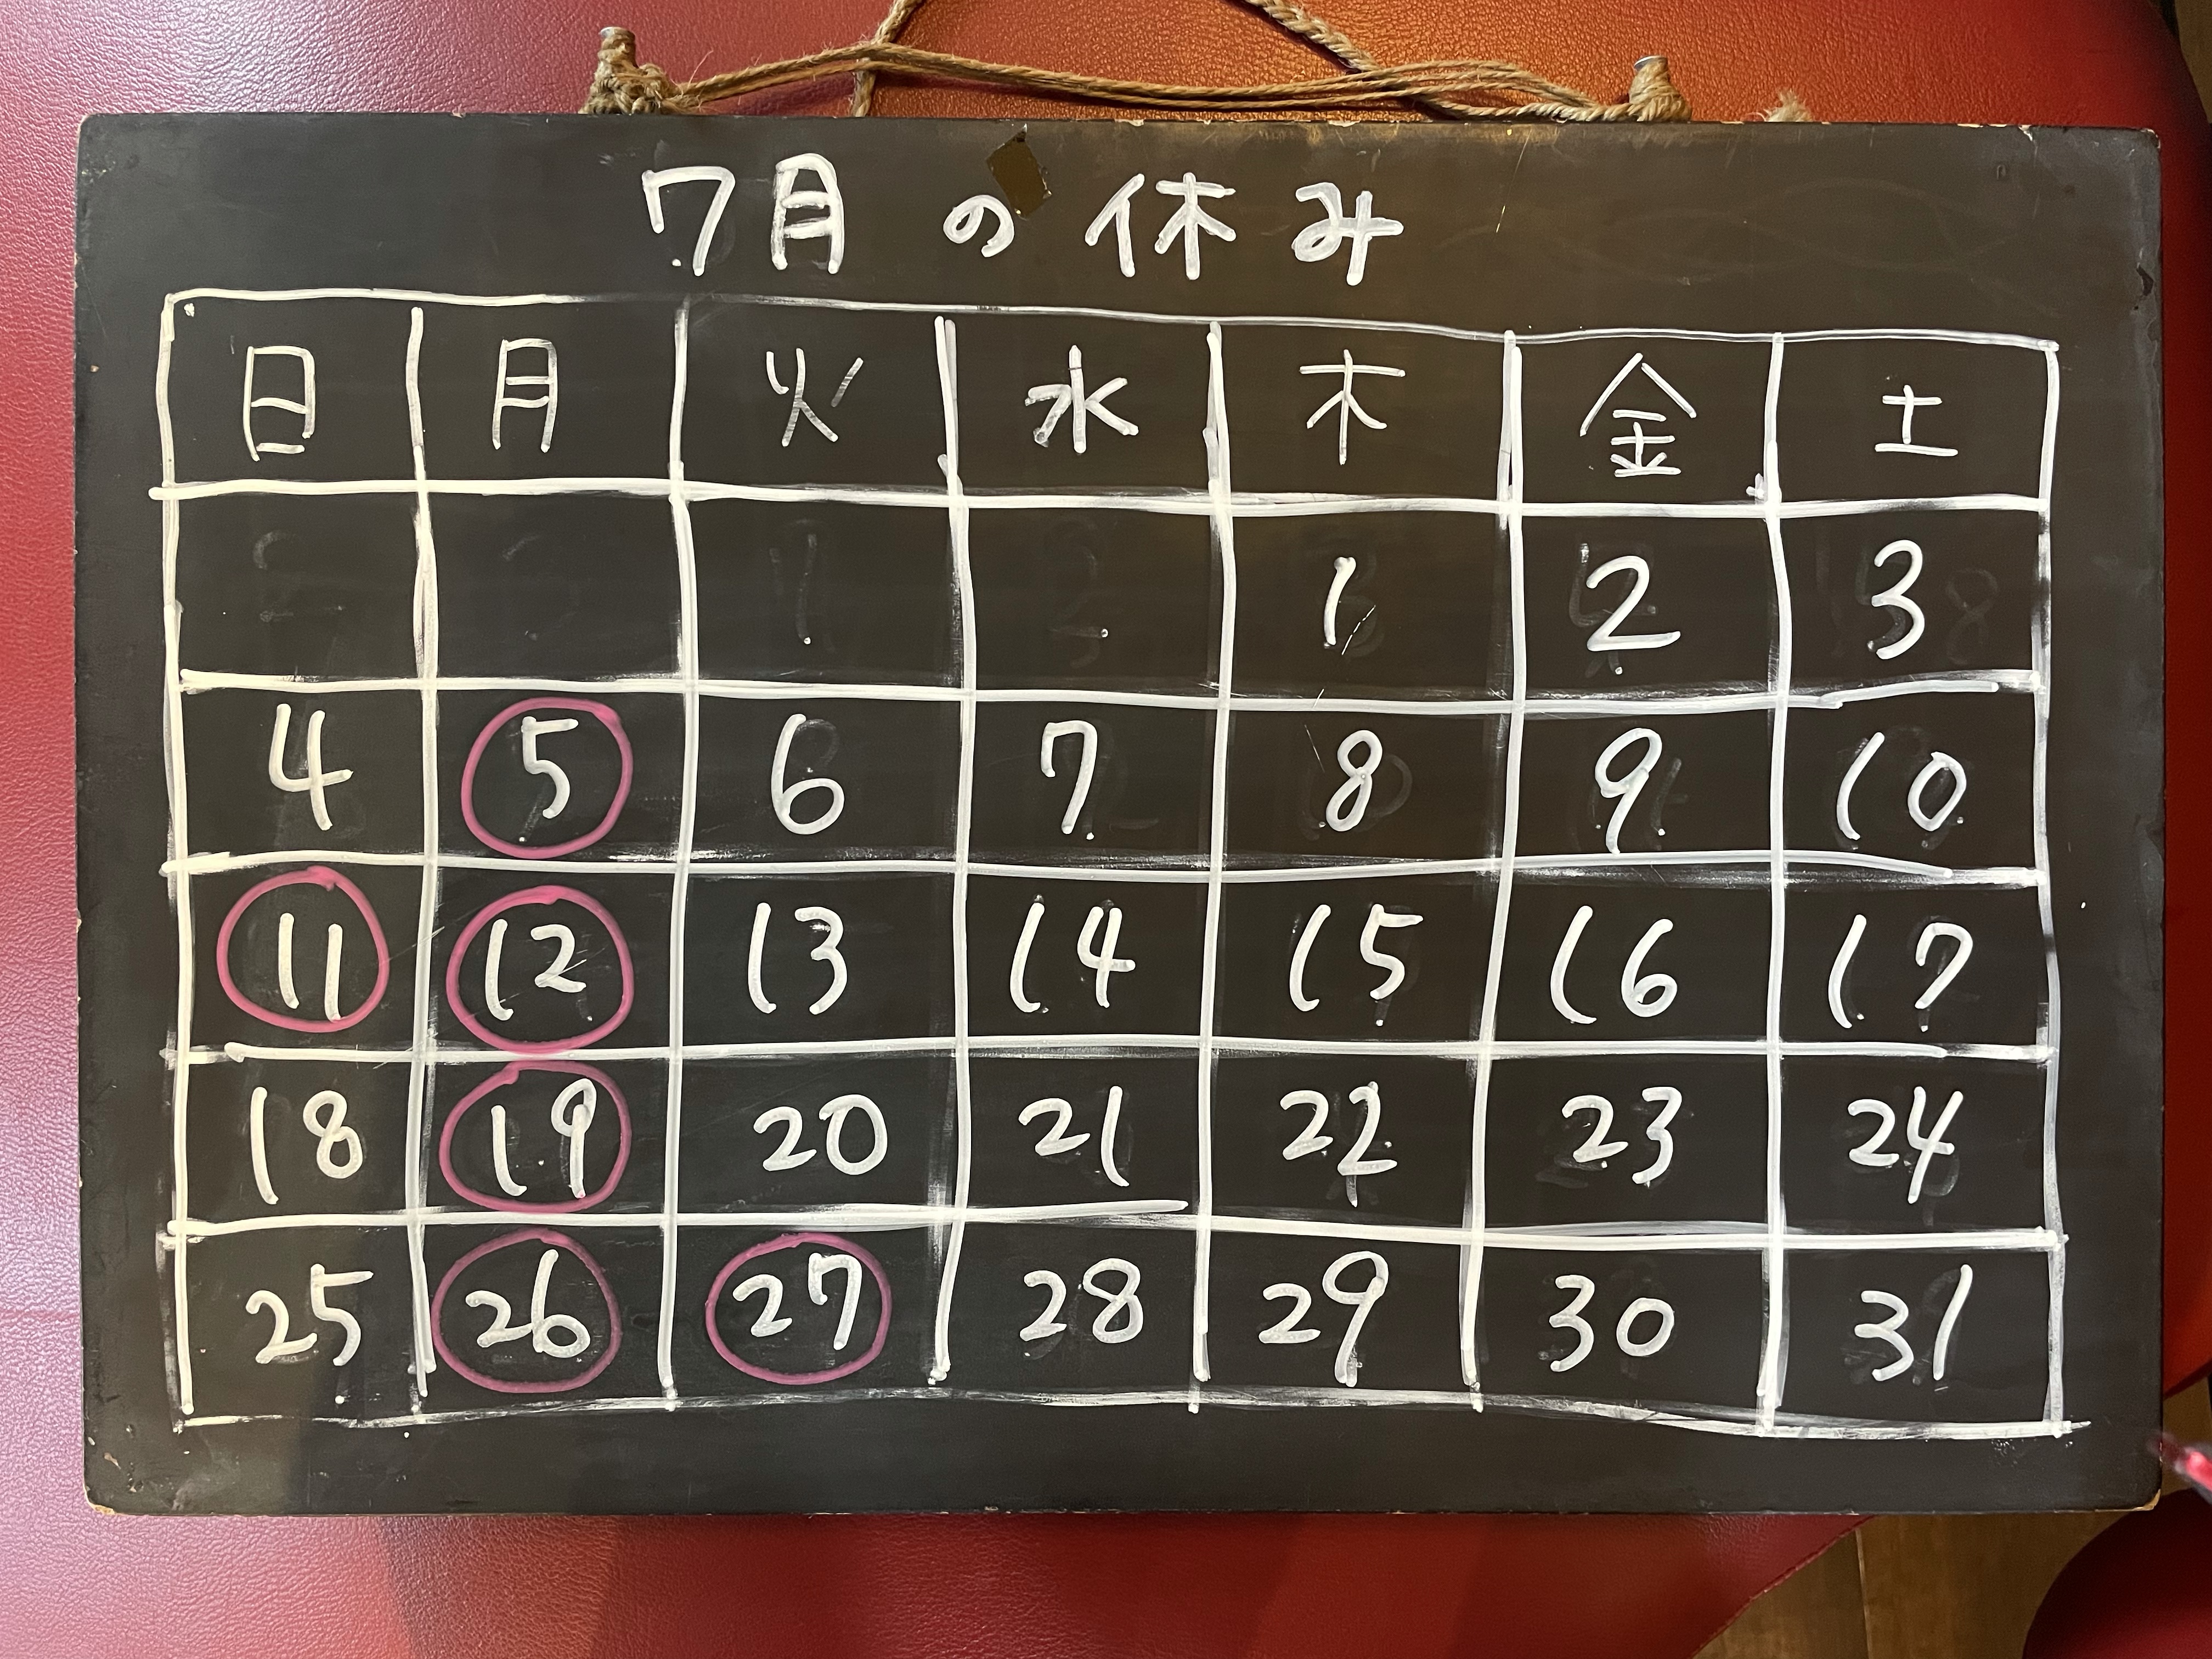 7月の休み
日 月 火 水 木 金 土
1 2 3
4 5 6 7 8 9 10
11 12 13 14 15 16 17
18 19 20 21 22 23 24
25 26 27 28 29 30 31